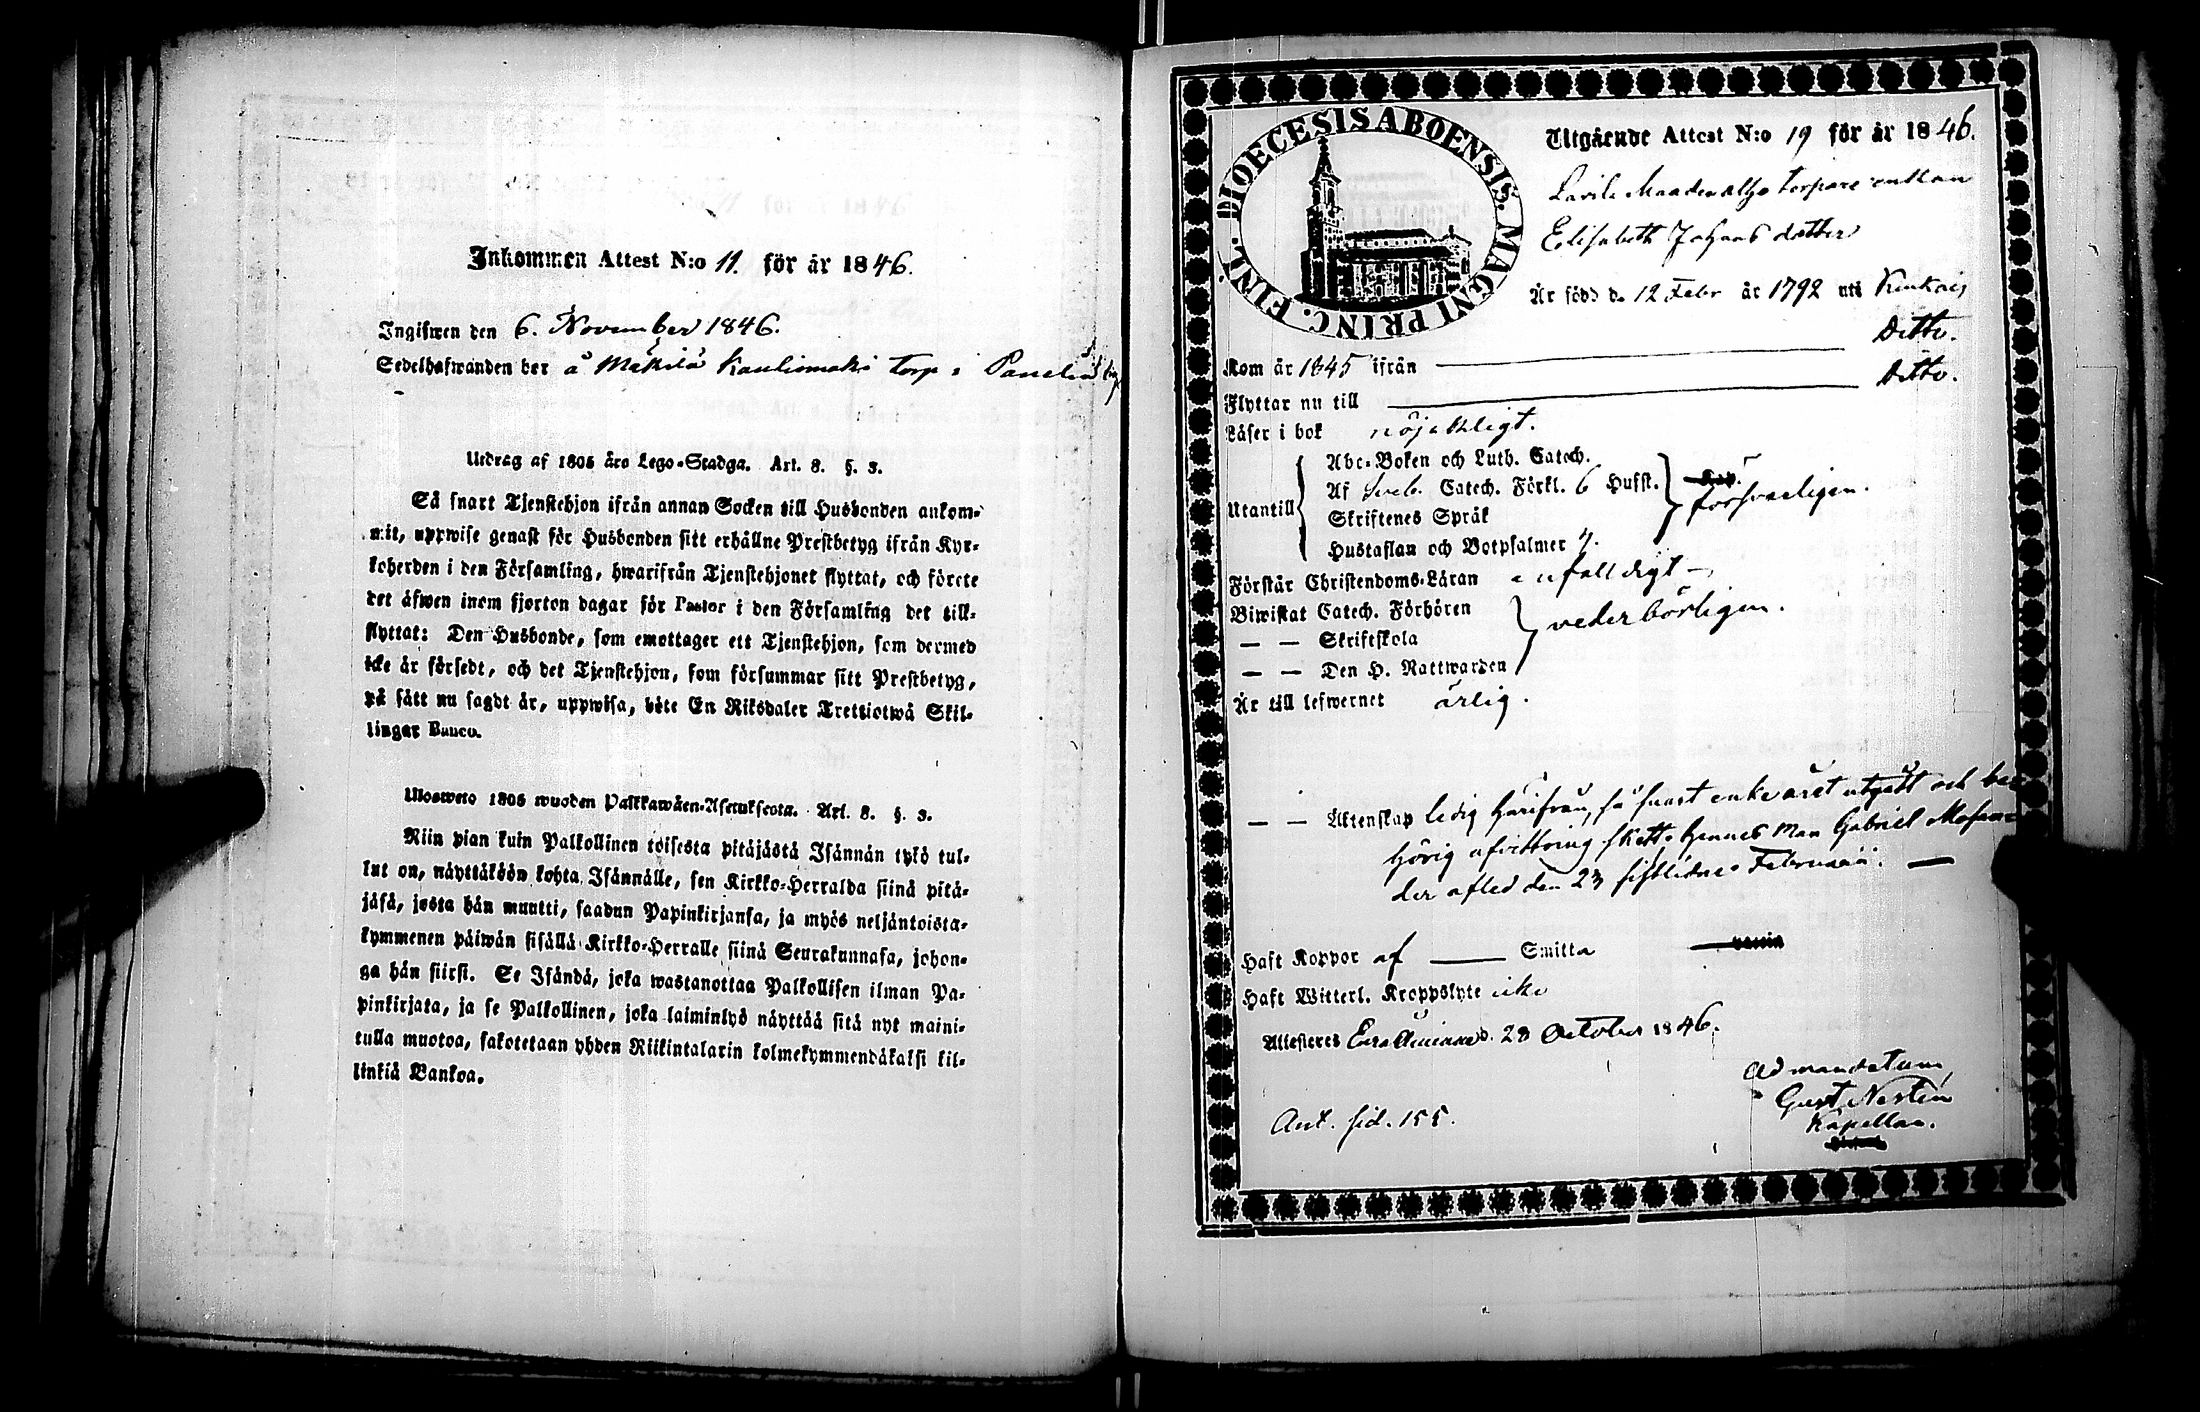 Inkommen Attest N:o 11. för år 1846.
Ingifwen den 6. November 1846.
Sedelhafwanden bor å Mäkilä Kauliomäki torp i Panelia by
Utdrag af 1805 års Lego-Stadga. Art. 8. §. 3.
Så snart Tjenstehjon ifrån annan Socken till Husbonden ankom-
mit, uppwise genast för Husbonden sitt erhållne Prestbetyg ifrån Kyr-
koherden i den Församling, hwarifrån Tjenstehjonet flyttat, och förete
det äfwen inom fjorton dagar för Pastor i den Församling det till-
flyttat: Den Husbonde, som emottager ett Tjenstehjon, som dermed
icke är försedt, och det Tjenstehjon, som försummar sitt Prestbetyg,
på sätt nu sagdt är, uppwisa, böte En Riksdaler Trettiotwå Skil-
lingar Banco.
Ulosweto 1805 wuoden Palkkawäen-Asetuksesta. Art. 8. §. 3.
Niin pian kuin Palkollinen toisesta pitäjästä Isännän tykö tul-
lut on, näyttäköön kohta Isännälle, sen Kirkko-Herralda siinä pitä-
jäsä, josta hän muutti, saadun Papinkirjansa, ja myös neljäntoista-
kymmenen päiwän sisällä Kirkko-Herralle siinä Seurakunnasa, johon-
ga hän siirsi. Se Isändä, joka wastanottaa Palkollisen ilman Pa-
pinkirjata, ja se Palkollinen, joka laiminlyö näyttää sitä nyt maini-
tulla muotoa, sakotetaan yhden Riikintalarin kolmekymmendäkaksi kil-
linkiä Bankoa.
DIOECESIS ABOENSIS. MAGNI PRINC. FINL.
Utgående Attest N:o 19 för år 1846.
Lavila torpare enkan
Elisabeth Johansdotter
Är född d. 12 Febr år 1792 uti Kiukais
Kom år 1845 ifrån Ditto.
Flyttar nu till Ditto.
Läser i bok nöjaktligt.
Utantill
Abc-Boken och Luth. Catech.
Af Sveb. Catech. Förkl. 6 Hufst.
Skriftenes Språk
Hustaflan och Botpsalmer
försvarligen.
Förstår Christendoms-Läran enfalldigt
Biwistat Catech. Förhören
— — Skriftskola
— — Den H. Nattwarden
vederbörligen.
Är till lefwernet ärlig.
— — Äktenskap ledig härifrån, så snart enkeåret utgått och be-
hörig afvittring skett. Hennes Man Gabriel
der afled den 23 sistlidne Februarii.
Haft Koppor af Smitta
Haft Witterl. Kroppslyte icke
Attesteres d. 28 October 1846.
Ad mandatum
Gust Nestén
Kapellan.
Ant. sid. 155.